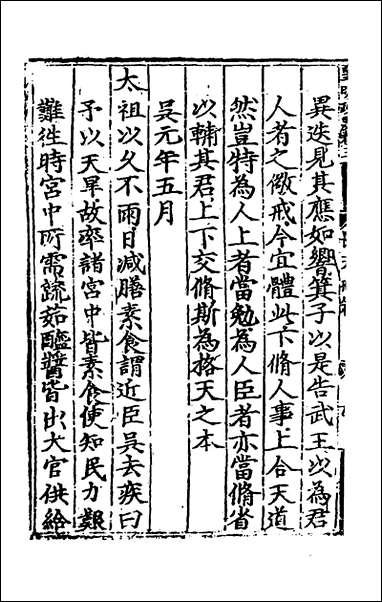 異迭見其應如響箕子以是告武王以為君
人者之儆戒今宜體此下脩人事上合天道
然豈特為人上者當勉為人臣者亦當脩省
以輔其君上下交脩斯為格天之本
吳元年五月
太祖以久不雨日減膳素食謂近臣吳去疾曰
予以天旱故率諸宮中皆素食使知民力艱
難徃時宮中所需蔬茹醯醬皆出大官供給